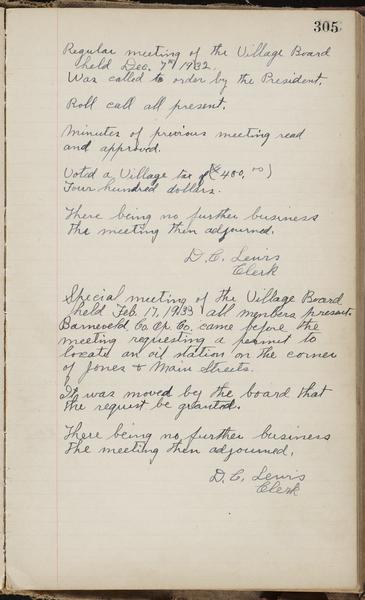 305
Regular meeting of the Village Board
held Dec. 7th 1932.
Was called to order by the President.
Roll call all present.
Minutes of previous meeting read
and approved.
Voted a Village tax of ($400.00)
Four hundred dollars.
There being no further business
the meeting then adjourned.
D. C. Lewis
Clerk
Special meeting of the Village Board
held Feb. 17, 1933 all members present.
Barneveld Co. Op. Co. came before the
meeting requesting a permit to
locate an oil station on the corner
of Jones & Main Streets.
It was moved by the board that
the request be granted.
There being no further business
the meeting then adjourned.
D. C. Lewis
Clerk